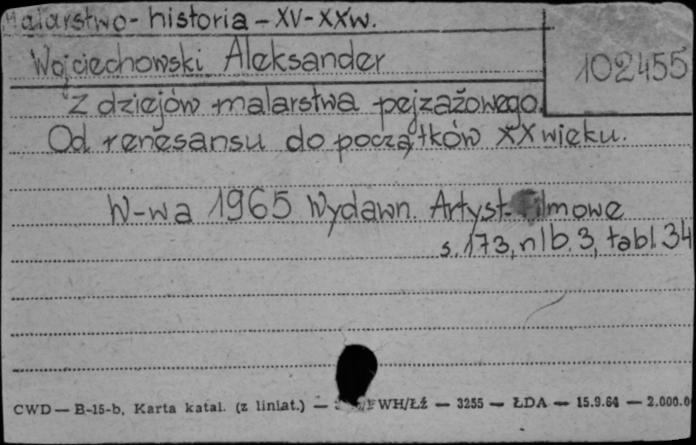 Malarstwo - historia - XV-XXw.
Wojciechowski Aleksander
102455
Z dziejów malarstwa pejzażowego.
Od renesansu do początków XX wieku.
W-wa 1965 Wydawn. Artyst.-Filmowe
s. 173, nlb. 3, tabl. 34
CWD — B-15-b, Karta katal. (z liniat.) — WH/Łż — 3255 — ŁDA — 15.9.64 — 2.000.0